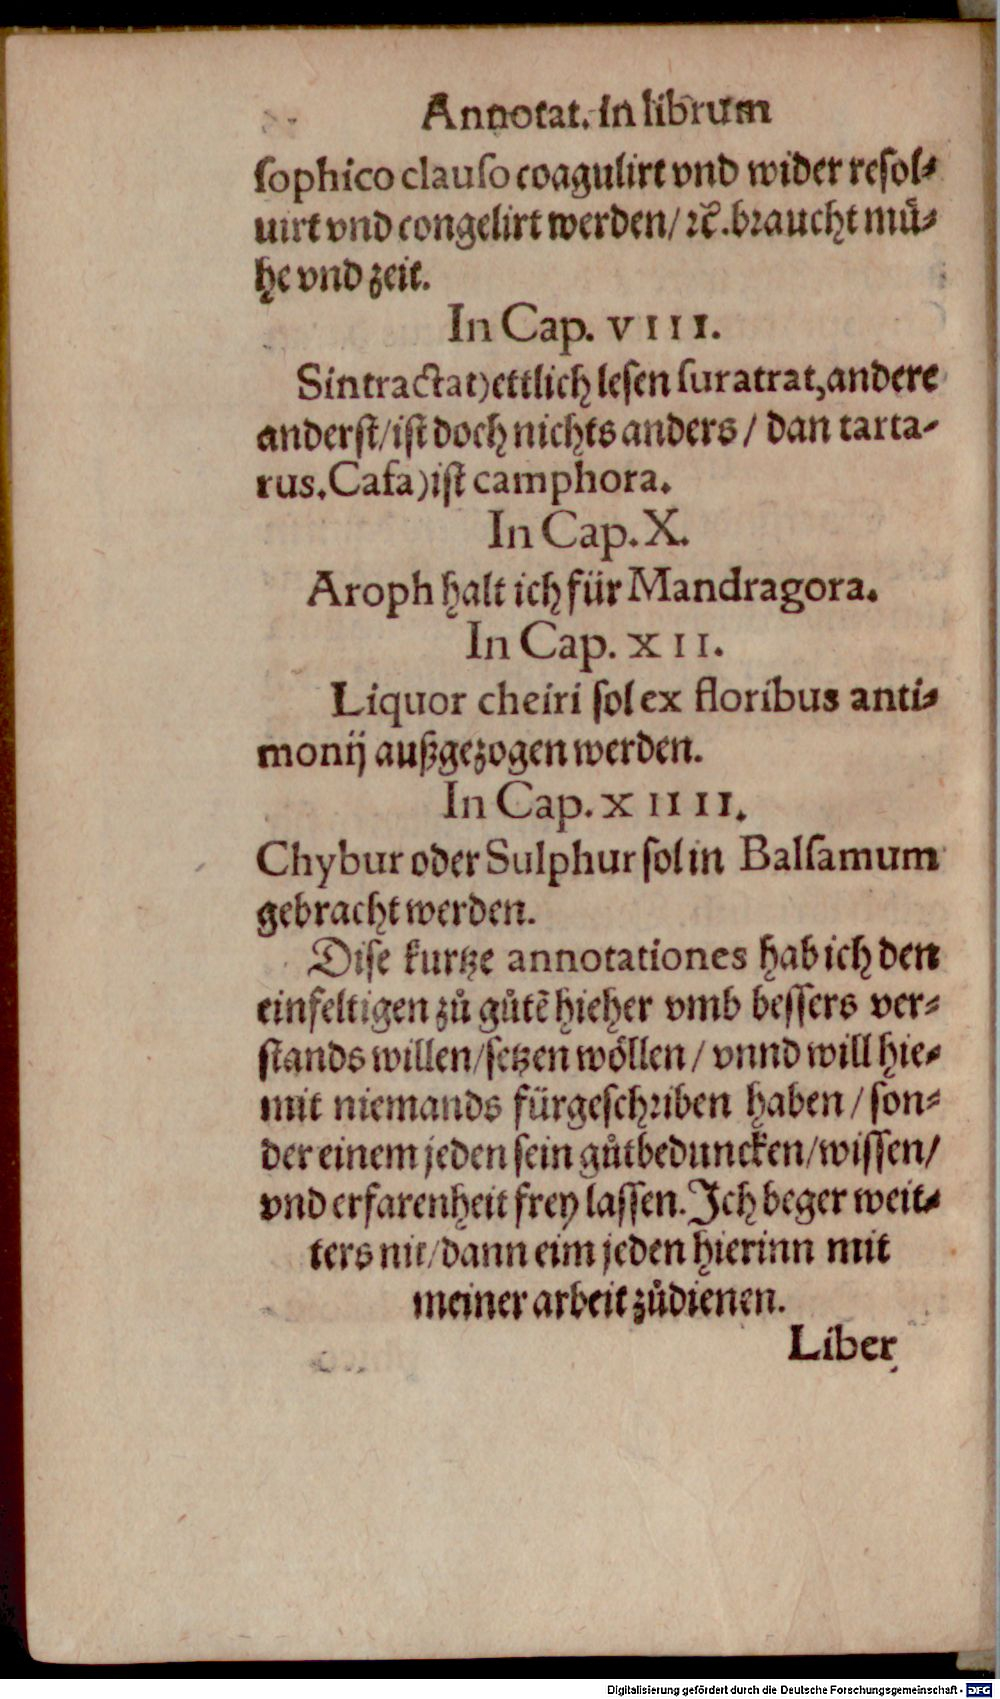 Annotat. in librum
sophico clauso coagulirt vnd wider resol⸗
uirt vnd congelirt werden/ ꝛc̃. braucht muͤ⸗
he vnd zeit.
In Cap. VIII.
Sintractat) ettlich lesen suratrat, andere
anderst/ ist doch nichts anders / dan tarta⸗
rus. Cafa) ist camphora.
In Cap. X.
Aroph halt ich für Mandragora.
In Cap. XII.
Liquor cheiri sol ex floribus anti⸗
monij außgezogen werden.
In Cap. XIIII.
Chybur oder Sulphur sol in Balsamum
gebracht werden.
Dise kurtze annotationes hab ich den
einfeltigen zů gůtẽ hieher vmb bessers ver⸗
stands willen/ setzen woͤllen / vnnd will hie⸗
mit niemands fürgeschriben haben / son⸗
der einem jeden sein gůtbeduncken/ wissen/
vnd erfarenheit frey lassen. Ich beger weit⸗
ters nit/ dann eim jeden hierinn mit
meiner arbeit zůdienen.
Liber
Digitalisierung gefördert durch die Deutsche Forschungsgemeinschaft - DFG